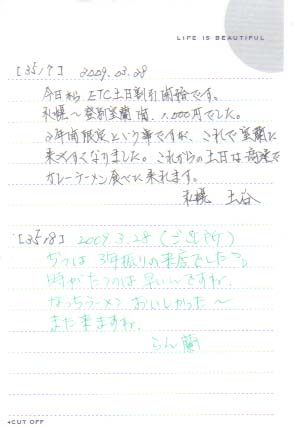 LIFE IS BEAUTIFUL
[3517] 2009.03.28
今日から ETC土日割引開始です。
札幌〜登別室蘭間、1,000円でした。
2年間限定という事ですが、これで室蘭に
来やすくなりました。これからの土日は高速で
カレーラーメン食べに来れます。
札幌 土谷
[3518] 2009.3.28
じつは 3年振りの来店でした
時がたつのは 早いんですね。
なっちラーメン おいしかった〜
また来ますね。
らん蘭
CUT OFF